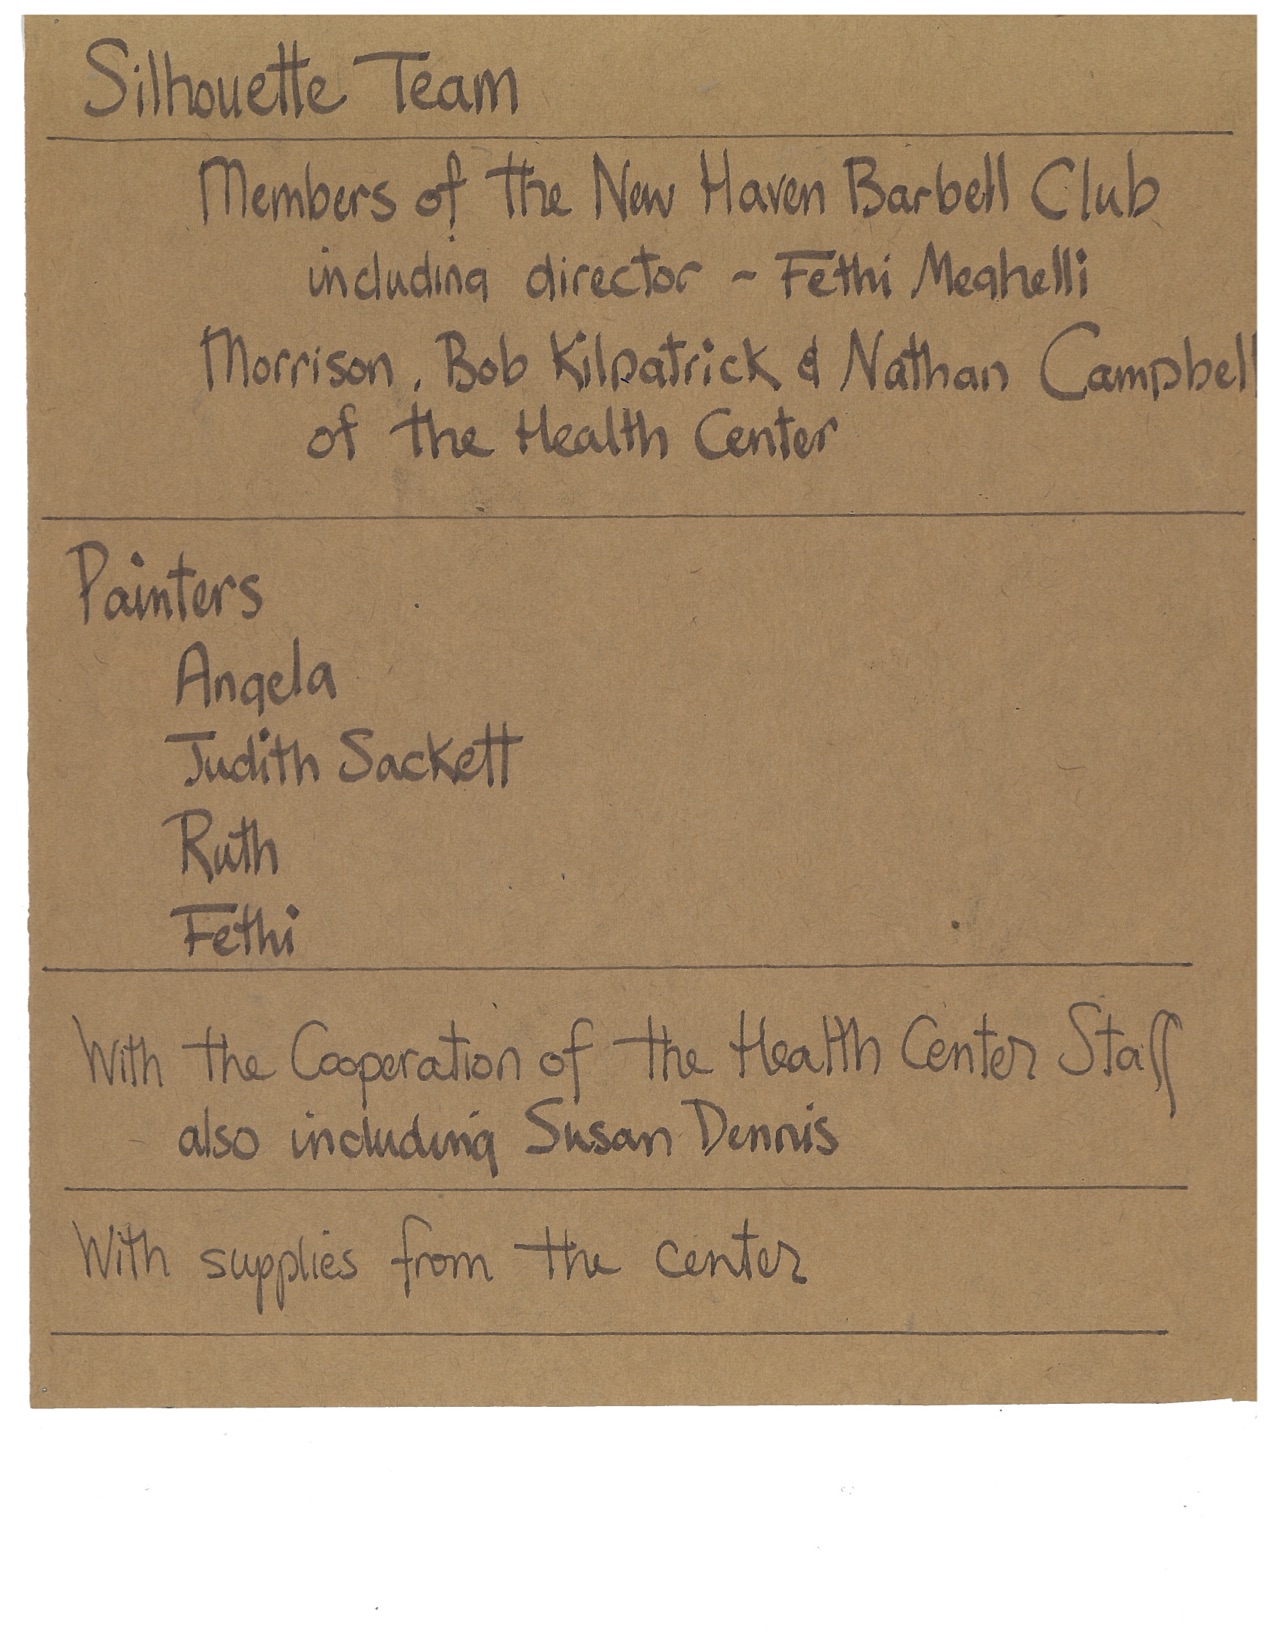 Silhouette Team
Members of the New Haven Barbell Club
including director - Fethi Meghelli
Morrison, Bob Kilpatrick & Nathan Campbell
of the Health Center
Painters
Angela
Judith Sackett
Ruth
Fethi
With the Cooperation of the Health Center Staff
also including Susan Dennis
With supplies from the center